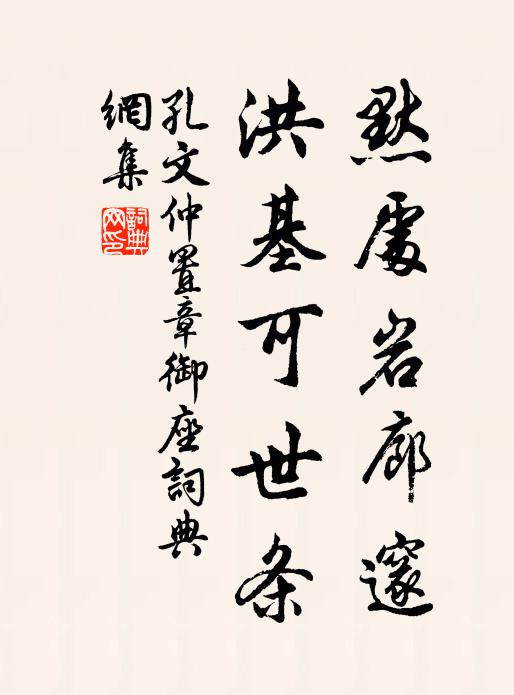 默處岩廊邃
洪基可世条
孔文仲置章御座詞典
網集
詞典网印